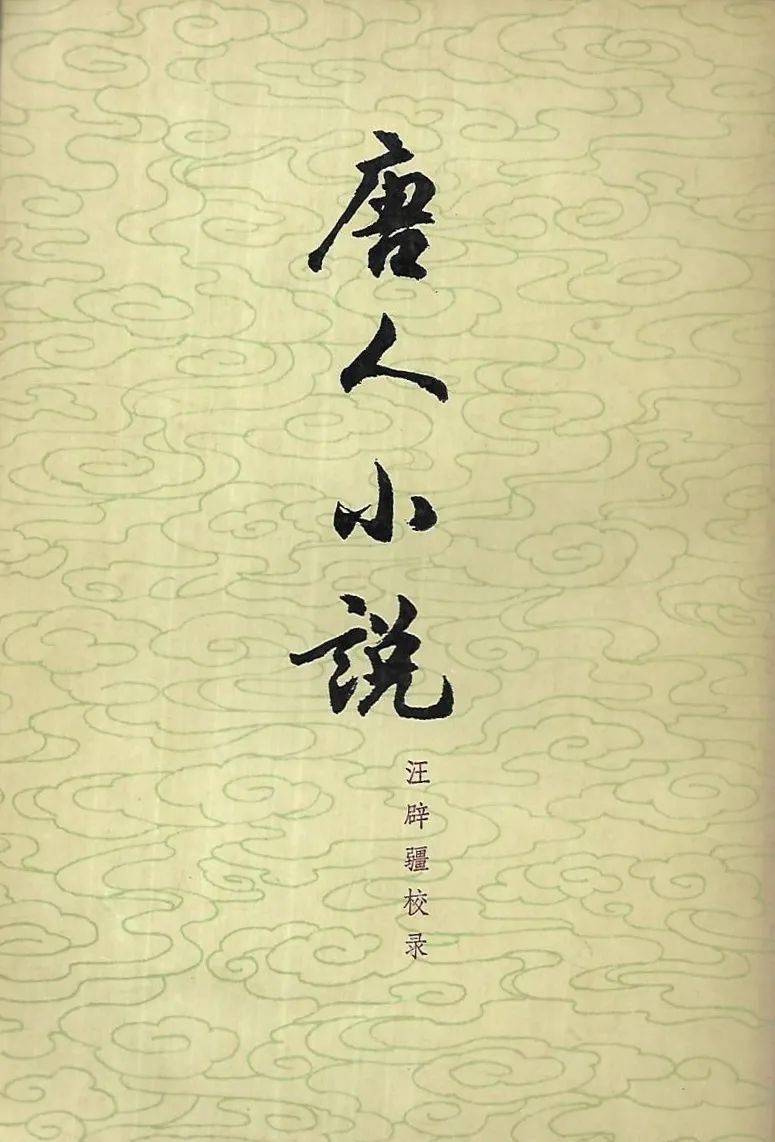 唐人小說
汪辟疆校录